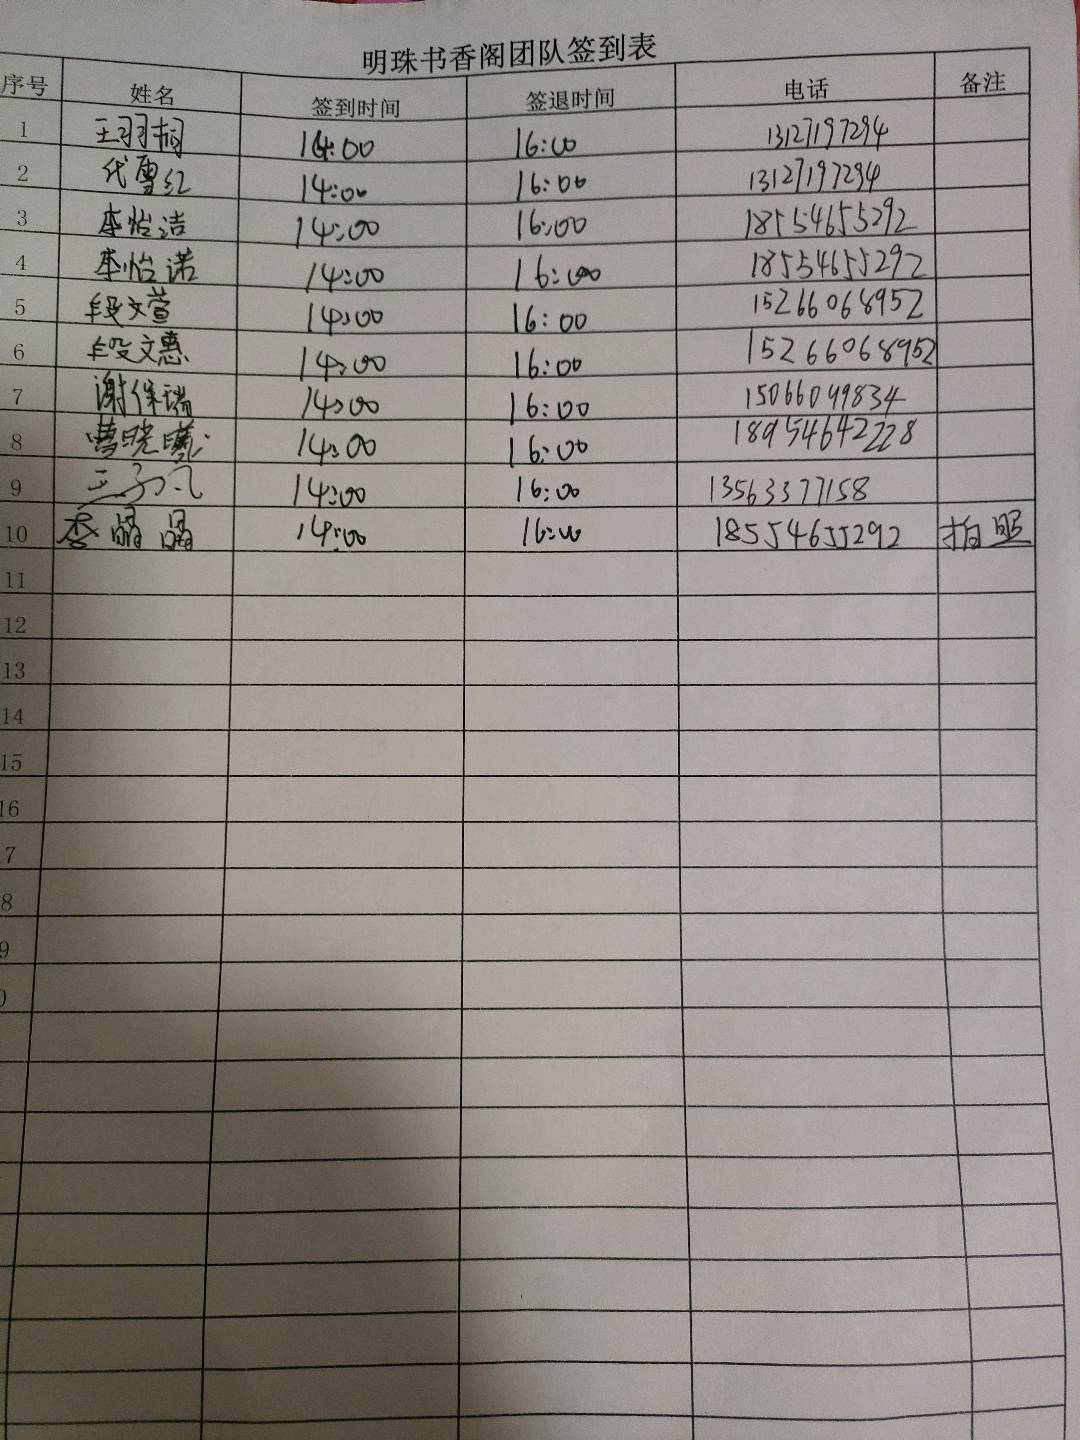 明珠书香阁团队签到表
序号 姓名 签到时间 签退时间 电话 备注
1 王羽桐 14:00 16:00 13127197294
2 代雪红 14:00 16:00 13127197294
3 李怡洁 14:00 16:00 18554655292
4 李怡诺 14:00 16:00 18554655292
5 段文萱 14:00 16:00 15266068952
6 段文惠 14:00 16:00 15266068952
7 谢保瑞 14:00 16:00 15066049834
8 曹晓曦 14:00 16:00 18954642228
9 14:00 16:00 13563377158
10 李晶晶 14:00 16:00 18554655292 拍照
11
12
13
14
15
16
7
8
9
0